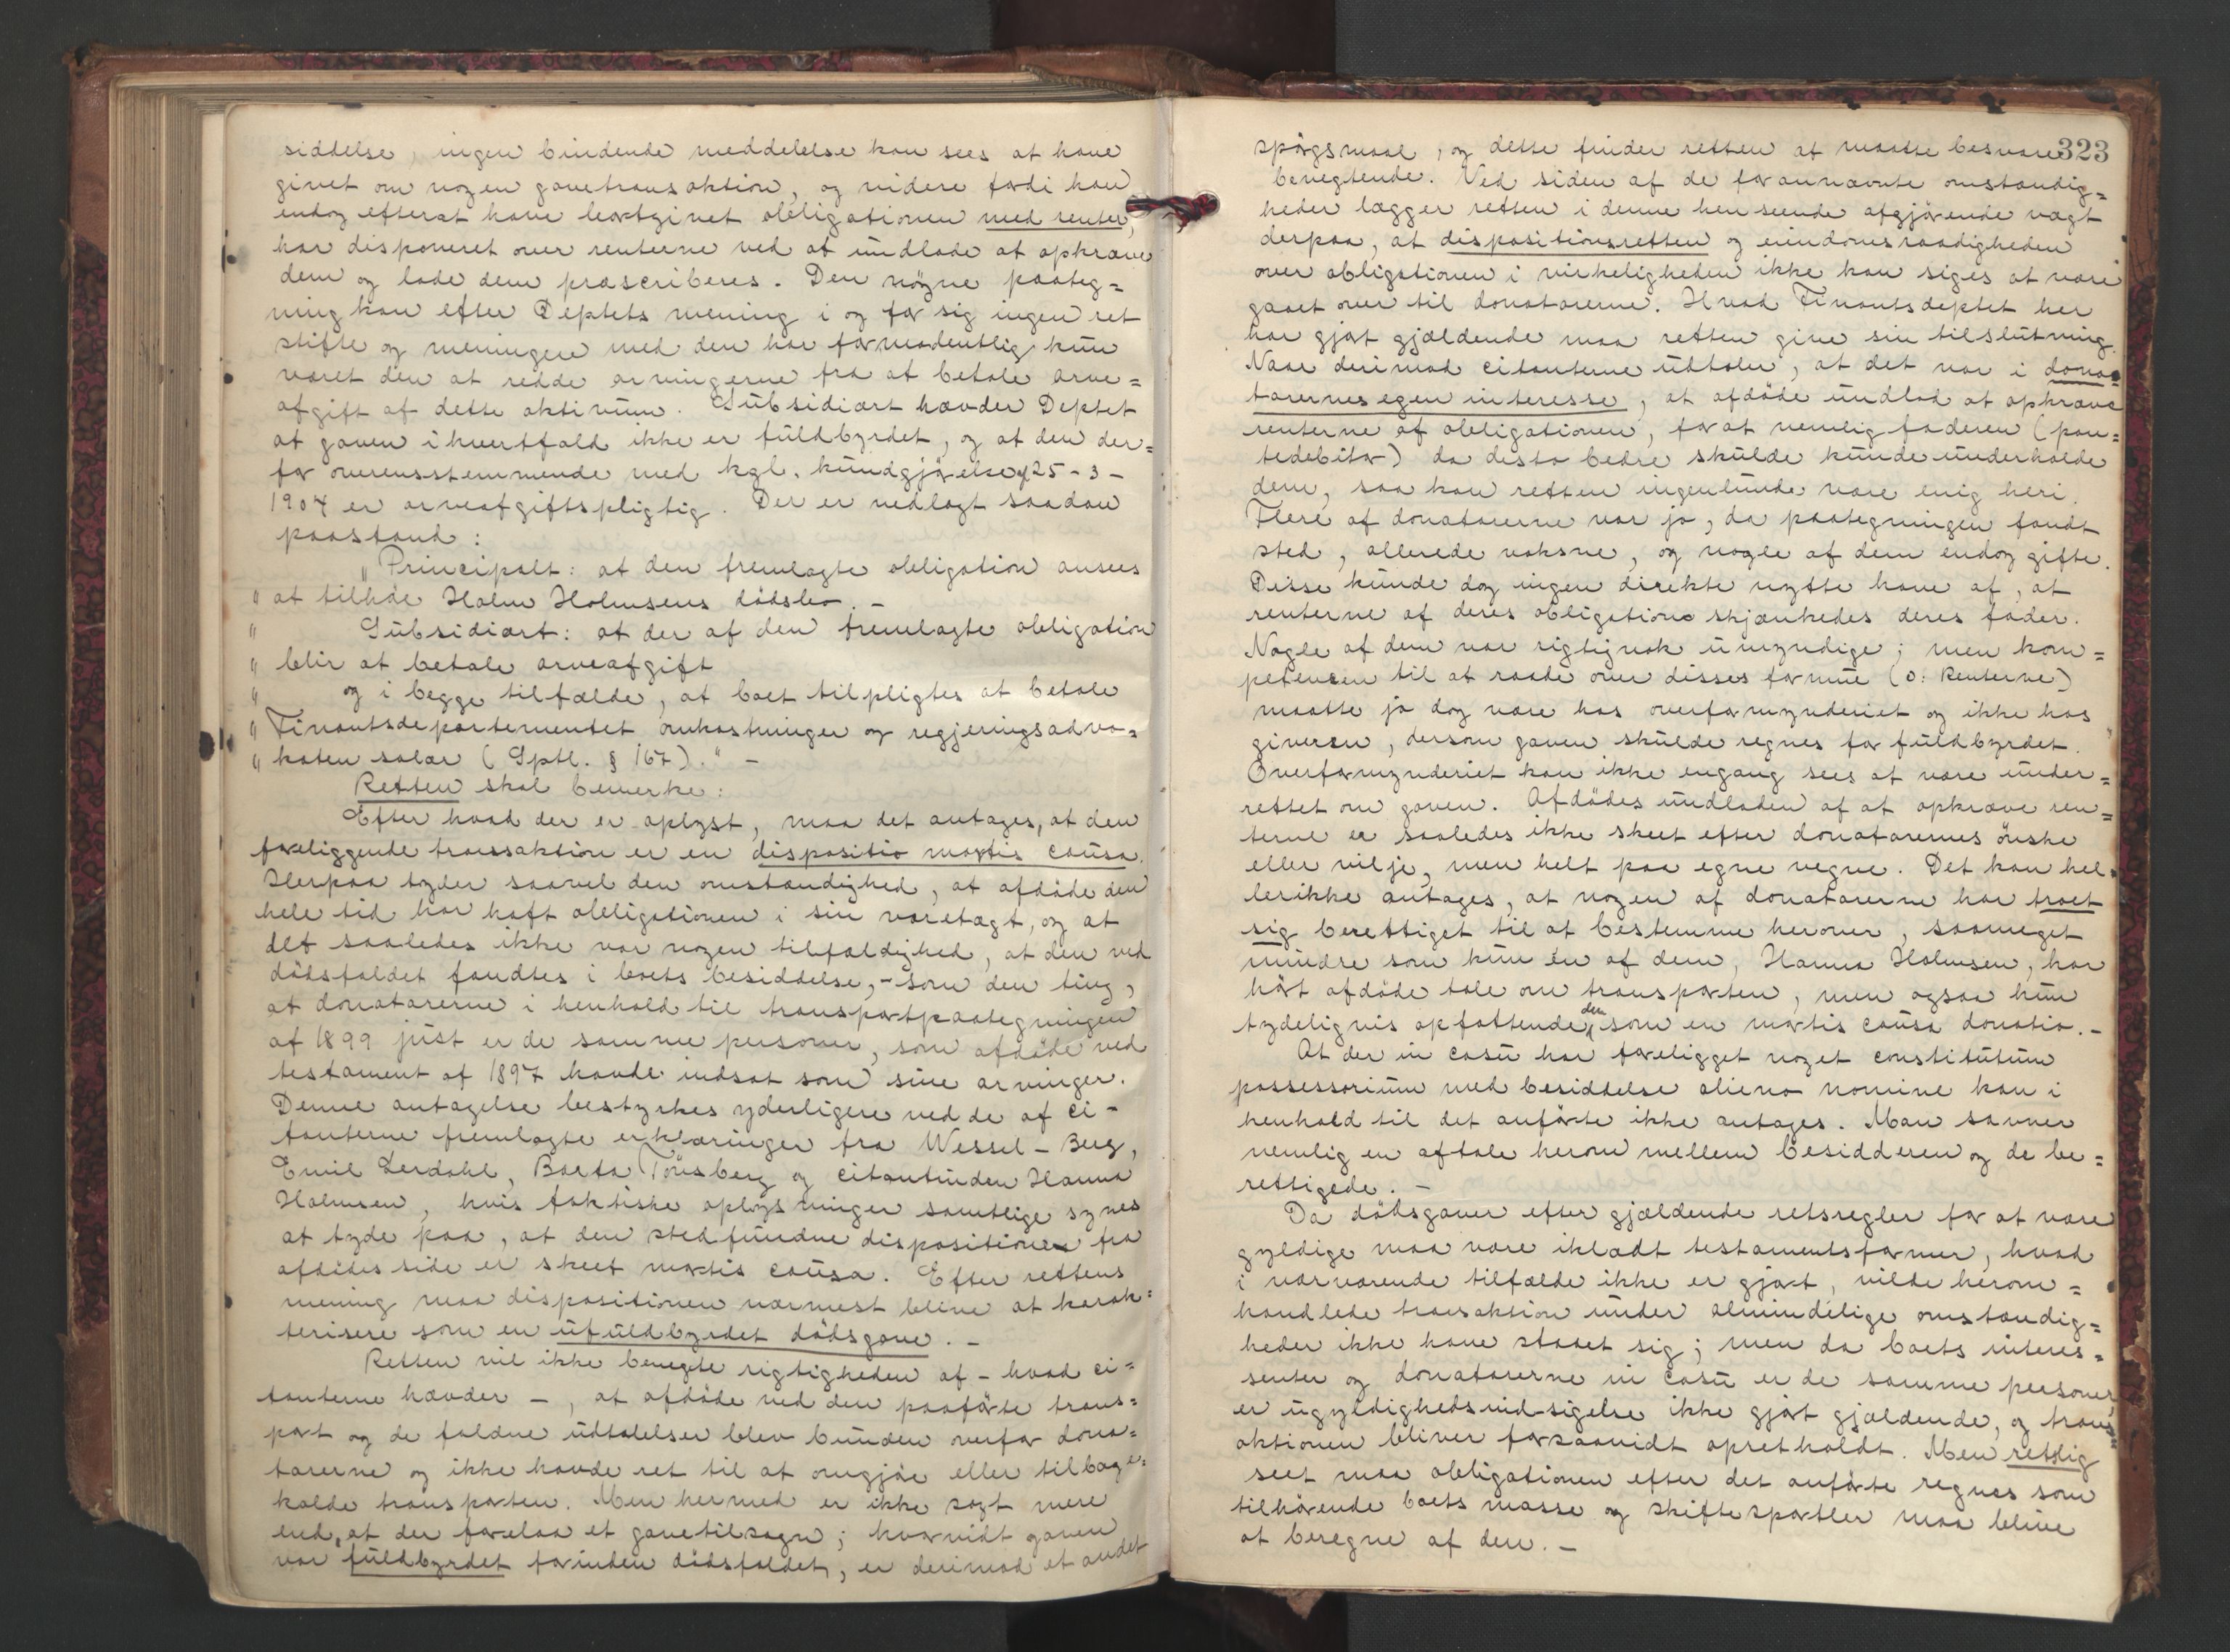 siddelse, ingen bindende meddelelse kan sees at have
givet om nogen gavetransaktion, og videre fordi han
endog efterat have bortgivet obligationen med renter,
har disponeret over renterne ved at undlade at opkræve
dem og lade dem præscriberes. Den nøgne paateg=
ning kan efter Deptets mening i og for sig ingen ret
stifte og meningen med den har formodentlig kun
været den at redde arvingerne fra at betale arve=
afgift af dette aktivum. Subsidiært hævder Deptet
at gaven ihvertfald ikke er fuldbyrdet, og at den der=
for overensstemmende med kgl. kundgjørelse af 25-3-
1904 er arveafgiftspligtig. Der er nedlagt saadan
paastand:
„Principalt: at den fremlagte obligation ansees
„ at tilhøre Halm Holmsens dødsbo. –
„ Subsidiært: at der af den fremlagte obligation
„ blir at betale arveafgift
„ og i begge tilfælde, at boet tilpligtes at betale
„ Finantsdepartementet omkostninger og regjeringsadvo=
„ katen salær (Sptl. § 167)." –
Retten skal bemerke:
Efter hvad der er oplyst, maa det antages, at den
foreliggende transaktion er en dispositio mortis causa.
Herpaa tyder saavel den omstændighed, at afdøde den
hele tid har haft obligationen i sin varetægt, og at
det saaledes ikke var nogen tilfældighed, at den ved
dødsfaldet fandtes i boets besiddelse, – som den ting,
at donatarerne i henhold til transportpaategningen
af 1899 just er de samme personer, som afdøde ved
testament af 1897 havde indsat som sine arvinger.
Denne antagelse bestyrkes yderligere ved de af ci-
tanterne fremlagte erklæringer fra Wessel-Berg,
Emil Lerdahl, Borta Tønsberg og citantinden Hanna
Holmsen, hvis faktiske oplysninger samtlige synes
at tyde paa, at den stedfundne disposition fra
afdødes side er skeet mortis causa. Efter rettens
mening maa dispositionen nærmest blive at karak=
terisere som en ufuldbyrdet dødsgave. –
Retten vil ikke benegte rigtigheden af – hvad ci=
tanterne hævder –, at afdøde ved den paaførte trans=
port og de faldne udtalelser blev bunden overfor dona=
tarerne og ikke havde ret til at omgjøre eller tilbage=
kalde transporten. Men hermed er ikke sagt mere
end, at der forelaa et gavetilsagn; hvorvidt gaven
var fuldbyrdet forinden dødsfaldet, er derimod et andet
323
spørgsmaal, og dette finder retten at maatte besvare
benegtende. Ved siden af de forannævnte omstændig=
heder lægger retten i denne henseende afgjørende vægt
derpaa, at dispositionsretten og eiendomsraadigheden
over obligationen i virkeligheden ikke kan siges at være
gaaet over til donatarerne. Hvad Finantsdeptet her
har gjort gjældende maa retten give sin tilslutning.
Naar derimod citanterne udtaler, at det var i dona=
tarernes egen interesse, at afdøde undlod at opkræve
renterne af obligationen, for at nemlig faderen (pan=
tedebitor) da desto bedre skulde kunde underholde
dem, saa kan retten ingenlunde være enig heri.
Flere af donatarerne var jo, da paategningen fandt
sted, allerede voksne, og nogle af dem endog gifte.
Disse kunde dog ingen direkte nytte have af, at
renterne af deres obligation skjænkedes deres fader.
Nogle af dem var rigtignok umyndige; men kom=
petencen til at raade over disses formue (ɔ: Renterne)
maatte jo dog være hos overformynderiet og ikke hos
giveren, dersom gaven skulde regnes for fuldbyrdet.
Overformynderiet kan ikke engang sees at være under=
rettet om gaven. Afdødes undladen af at opkræve ren=
terne er saaledes ikke skeet efter donatarernes ønske
eller vilje, men helt paa egne vegne. Det kan hel=
lerikke antages, at nogen af donatarerne har troet
sig berettiget til at bestemme herover, saameget
mindre som kun én af dem, Hanna Holmsen, har
hørt afdøde tale om transporten, men ogsaa hun
tydeligvis opfattende den som en mortis causa donatio. –
At der in casu har foreligget noget constitutum
possessorium med besiddelse alieno nomine kan i
henhold til det anførte ikke antages. Man savner
nemlig en aftale herom mellem besidderen og de be=
rettigede. –
Da dødsgaver efter gjældende retsregler for at være
gyldige maa være iklædt testamentsformer, hvad
i nærværende tilfælde ikke er gjort, vilde herom=
handlede transaktion under almindelige omstændig=
heder ikke have staaet sig; men da boets interes=
senter og donatarerne in casu er de samme personer,
er ugyldighedsindsigelse ikke gjort gjældende, og trans=
aktionen bliver forsaavidt opretholdt. Men retslig
seet maa obligationen efter det anførte regnes som
tilhørende boets masse og skiftesportler maa blive
at beregne af den. –